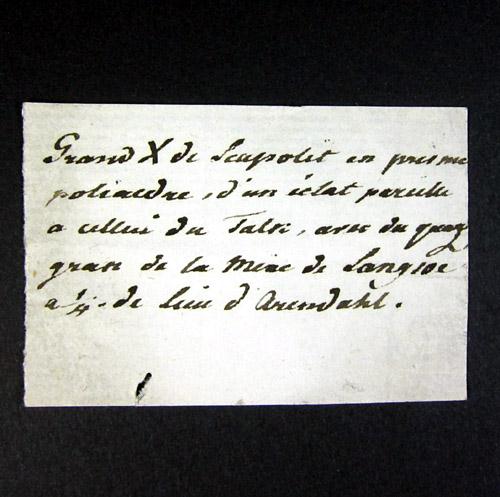 Grand X de Scapolit en prisme
poliaedre, d'un éclat pareille
a cellui du Talk, avec du quaz
gras de la Mine de Langsoe
a 1/4 de lieu d'Arendahl.